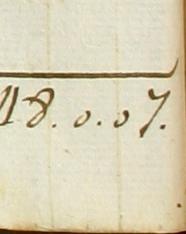 18. 0. 07.